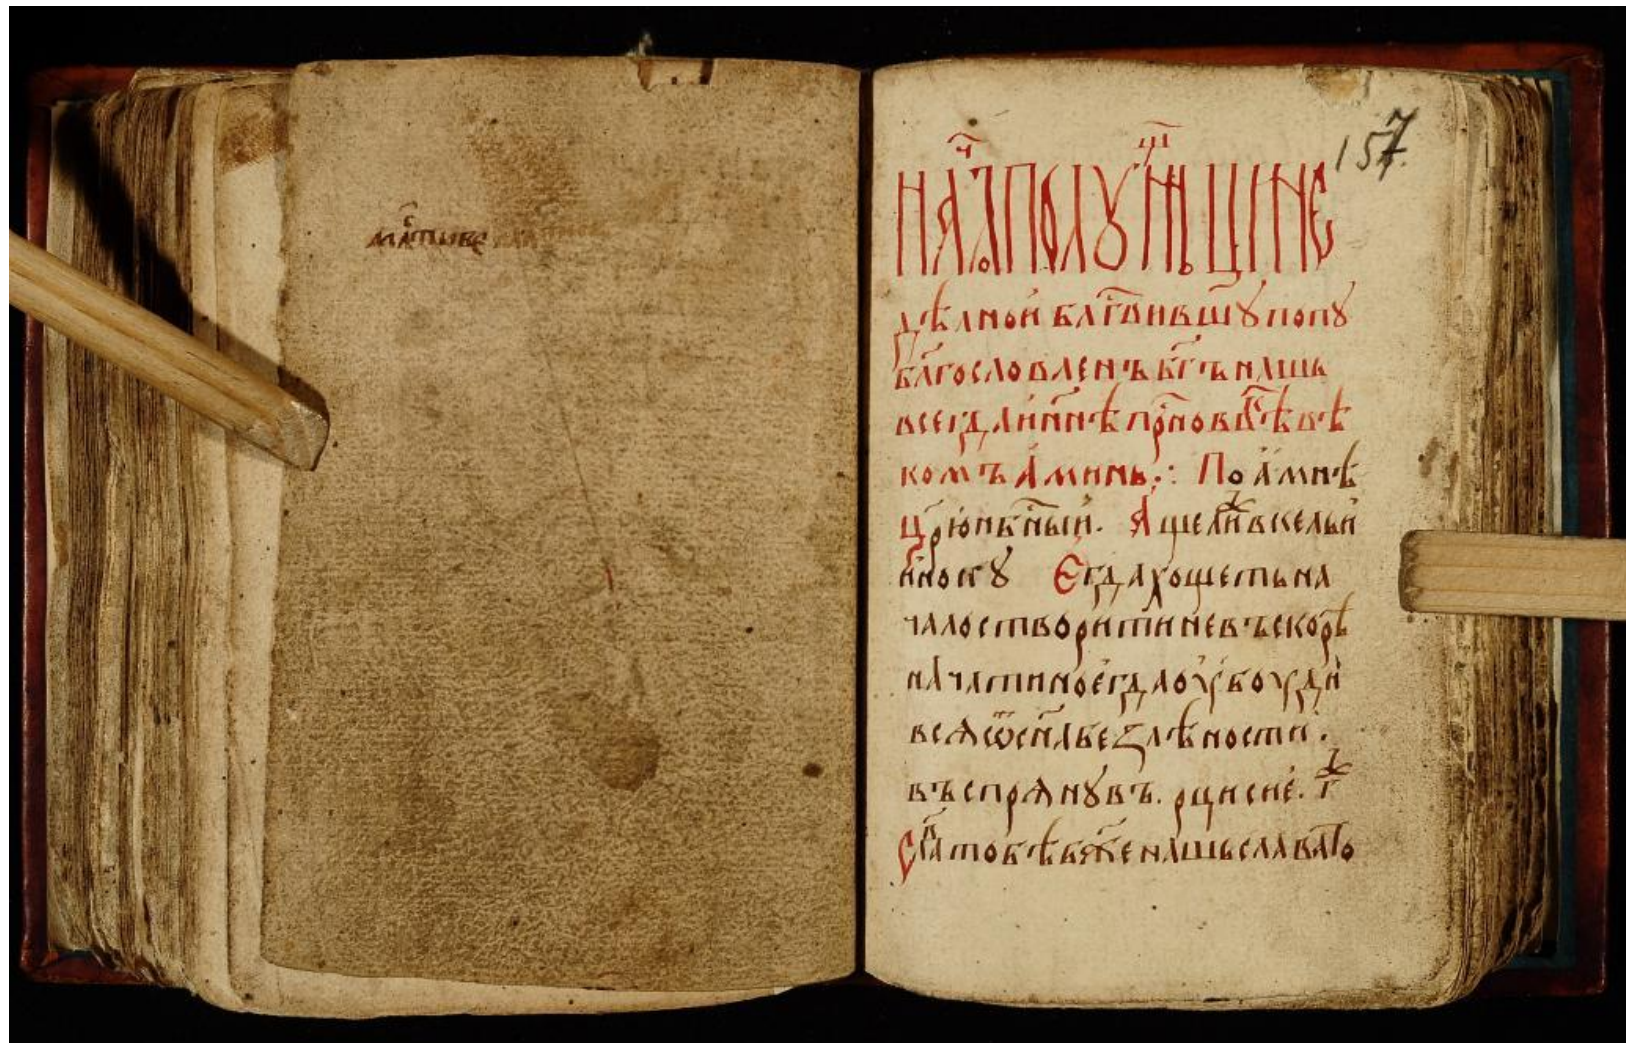 мл҃тыве
157
НАЧ҃АЛО ПОЛУНОЩ҃НИЦИ НЕ
дѣлной бл҃гⷭ҇вившꙋ попꙋ
бл҃гословленъ бг҃ъ нашь
всегда и нн҃ѣ и при҃сно въ вⷦ҇ѣ вѣ
комъ а҆минь჻ По а҆минѣ
цр҃ю нбⷭ҇ныи. А҆ще ли в кельи
иноку Є҆гда хощеть на
чало створити не въскорѣ
начати но є҆гда оу҆бо оуди
всѧ ѿ сн҃а без лѣности.
въспрѧнꙋвъ. рци сие. г҃
Сл҃ва тобѣ бж҃е нашь слава то